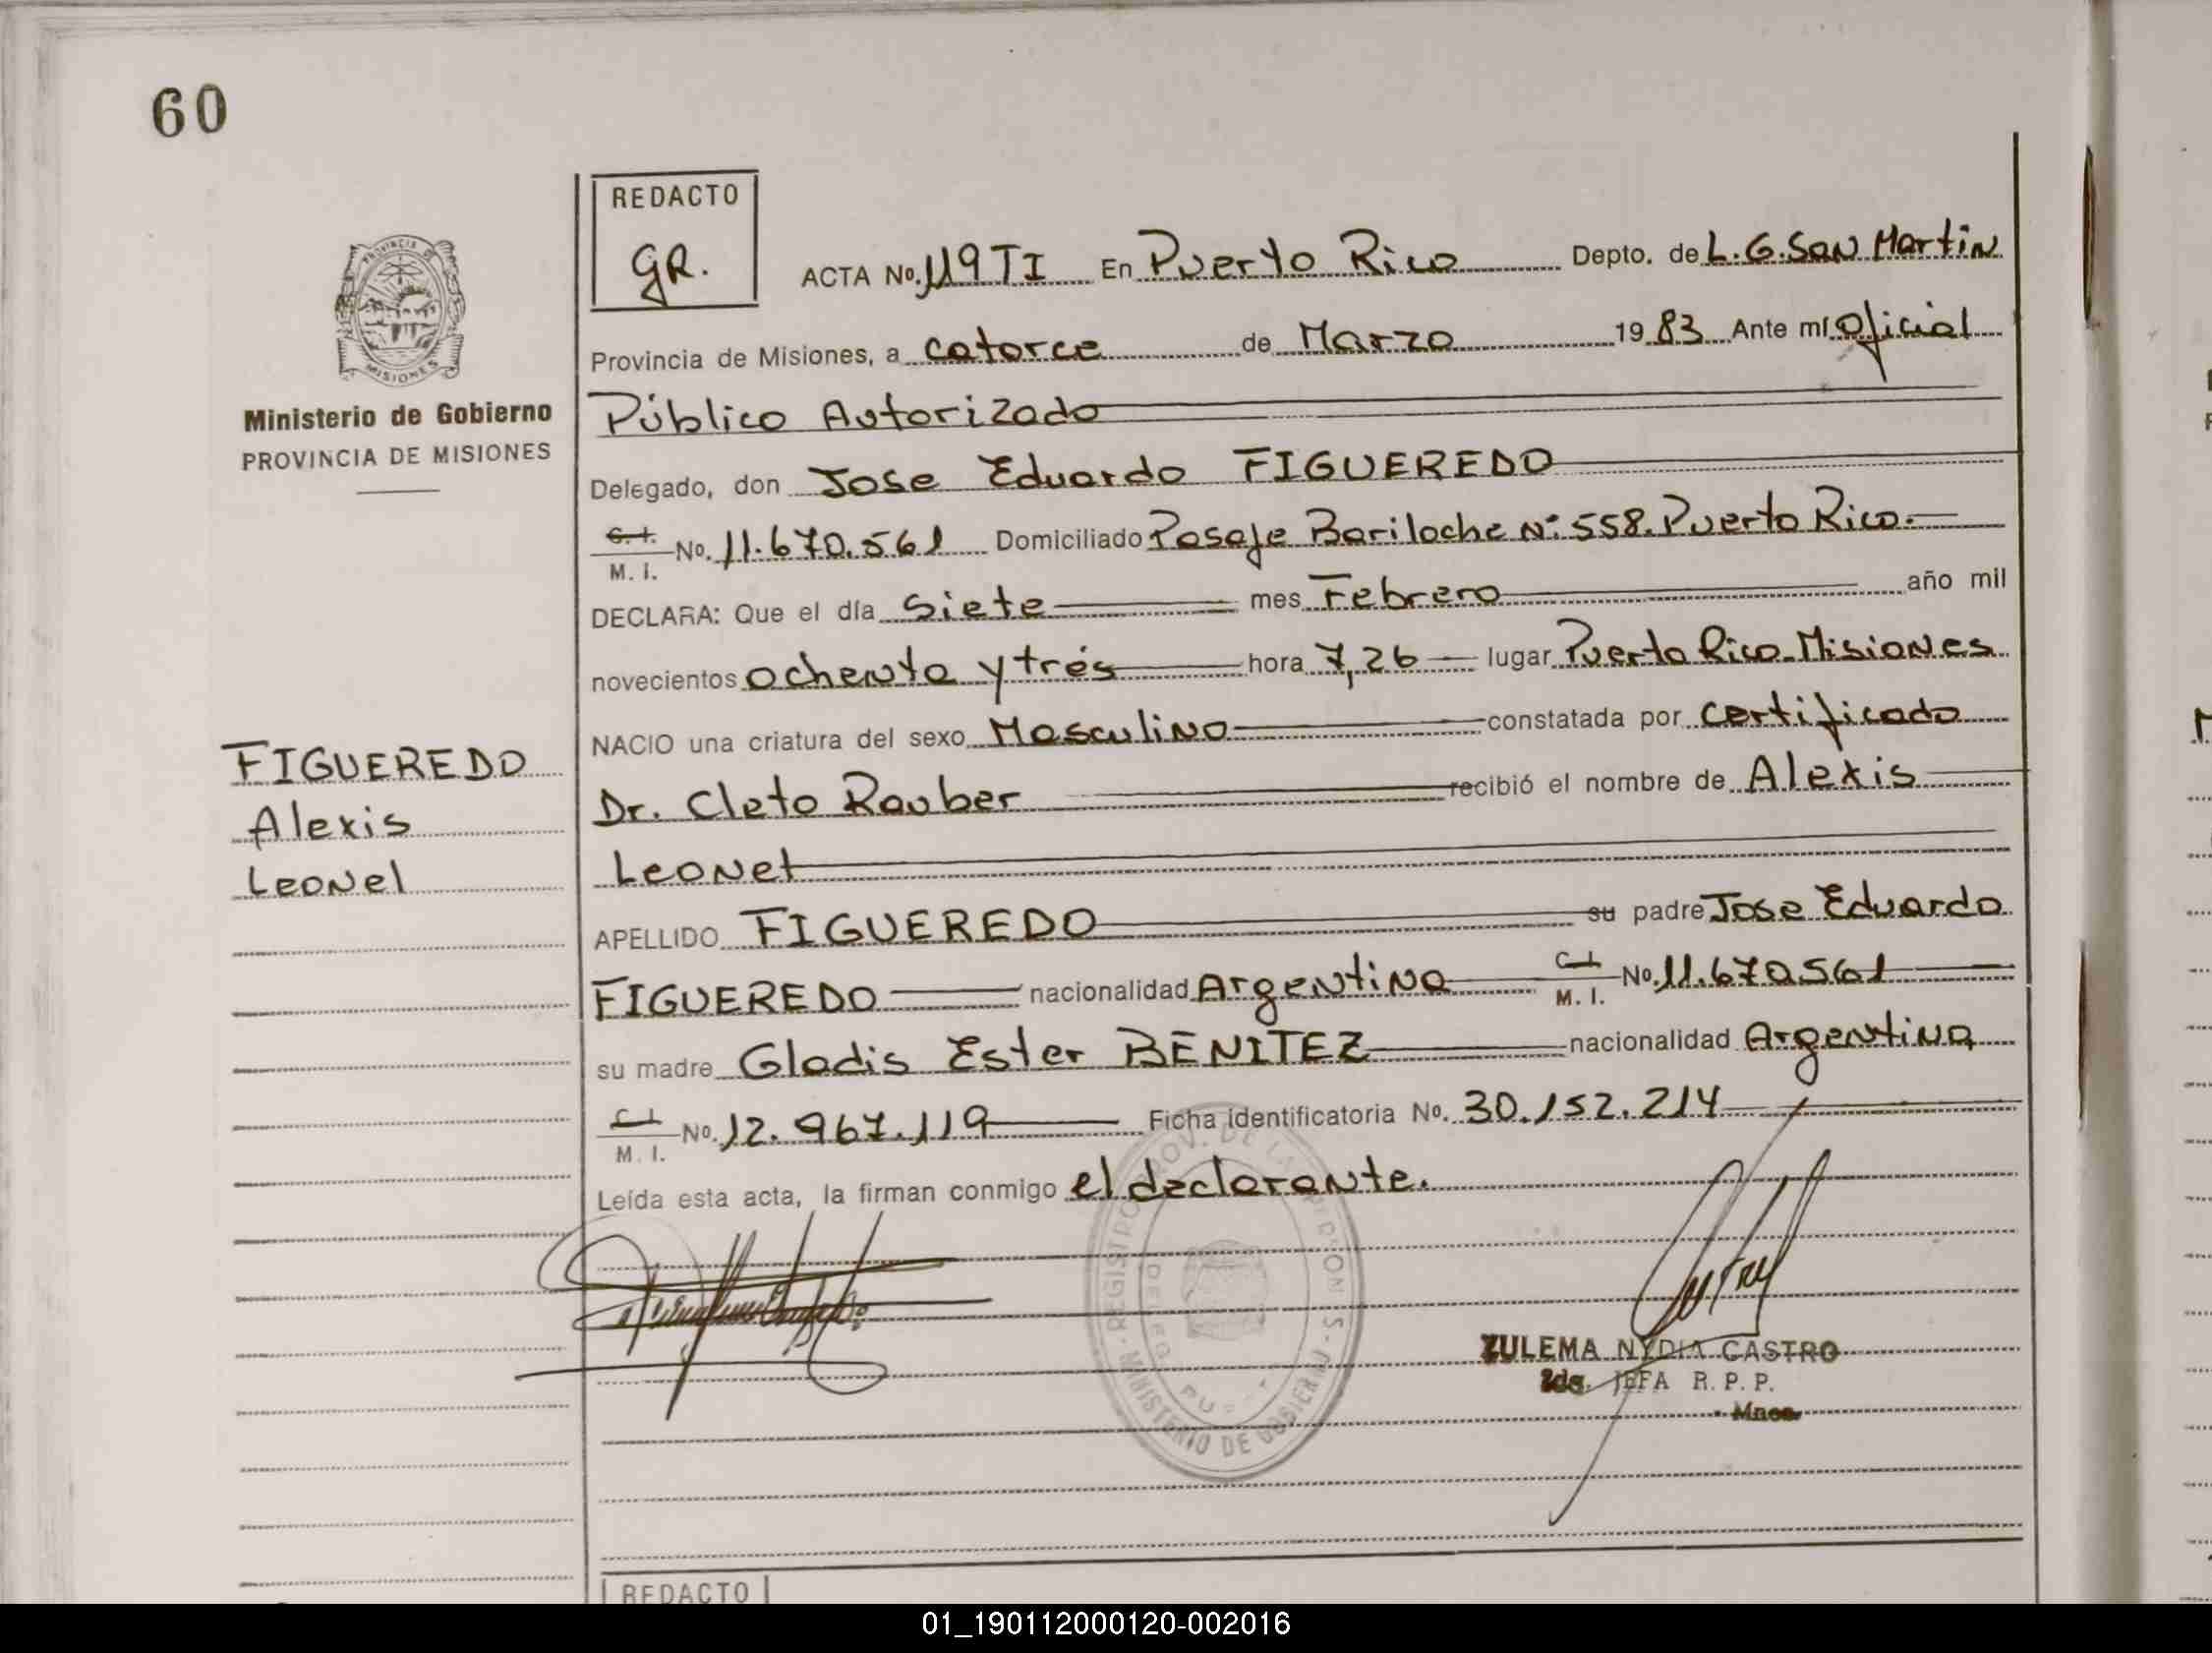 60
REDACTO
GR.
ACTA No. 119 TI En Puerto Rico Depto. de L. G. San Martin
Provincia de Misiones, a catorce de Marzo 1983 Ante mí Oficial
Público Autorizado
Delegado, don Jose Eduardo FIGUEREDO
C. I. M. I. No. 11.670.561 Domiciliado Pasaje Bariloche N: 558. Puerto Rico.
DECLARA: Que el día Siete mes Febrero año mil
novecientos ochenta y trés hora 7,26 lugar Puerto Rico Misiones
NACIO una criatura del sexo Masculino constatada por certificado
Dr. Cleto Rauber recibió el nombre de Alexis
Leonel
APELLIDO FIGUEREDO su padre Jose Eduardo
FIGUEREDO nacionalidad Argentina C. I. M. I. No. 11.670561
su madre Gladis Ester BENITEZ nacionalidad Argentina
C. I. M. I. No. 12.967.119 Ficha identificatoria No. 30.152.214
Leída esta acta, la firman conmigo el declarante.
PROVINCIA DE
MISIONES
Ministerio de Gobierno
PROVINCIA DE MISIONES
FIGUEREDO
Alexis
Leonel
REGISTRO PROV. DE LA
MINISTERIO DE GOBIERNO
ZULEMA NYDIA CASTRO
2da. JEFA R. P. P.
Mnes.
REDACTO
01_190112000120-002016